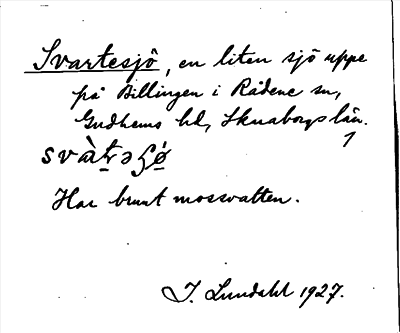 Svartesjö, en liten sjö uppe
på Billingen i Rådene sn,
Gudhems hd, Skaraborgs län.
1
Har brunt mossvatten.
I. Lundahl 1927.